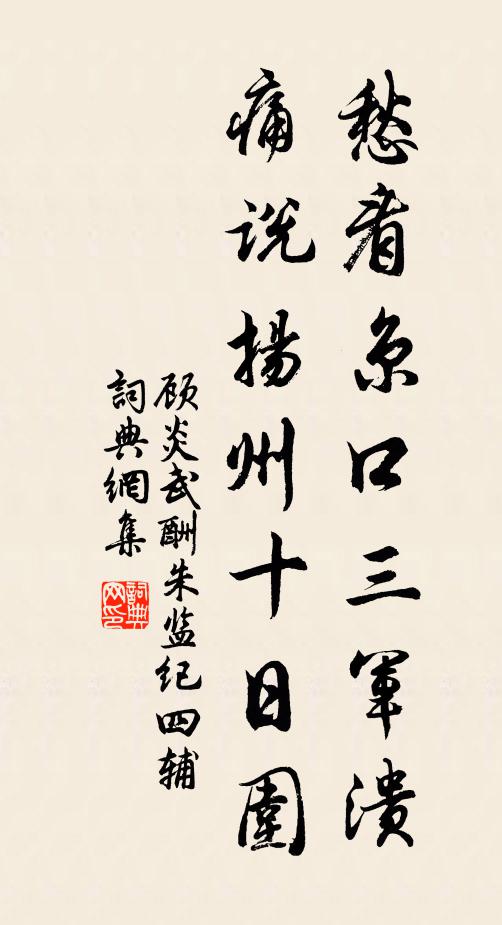 愁看京口三軍潰
痛说揚州十日圍
顾炎武酬朱监纪四辅
詞典網集
詞典网印